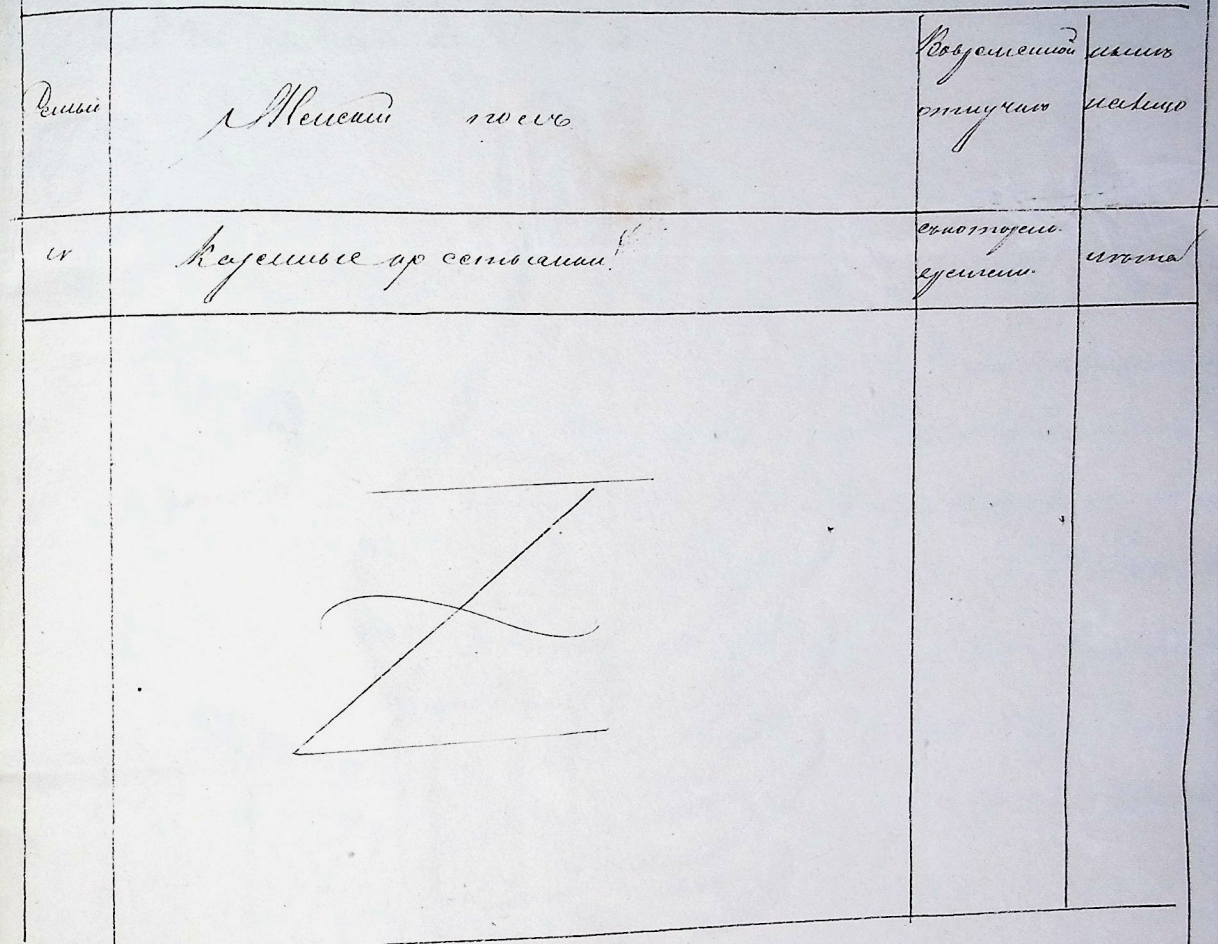 Семьи
Женский полъ
Вовременной
отлучке
нынѣ
налицо
№
Казенные крестьянки
скотораго
времени
лѣта